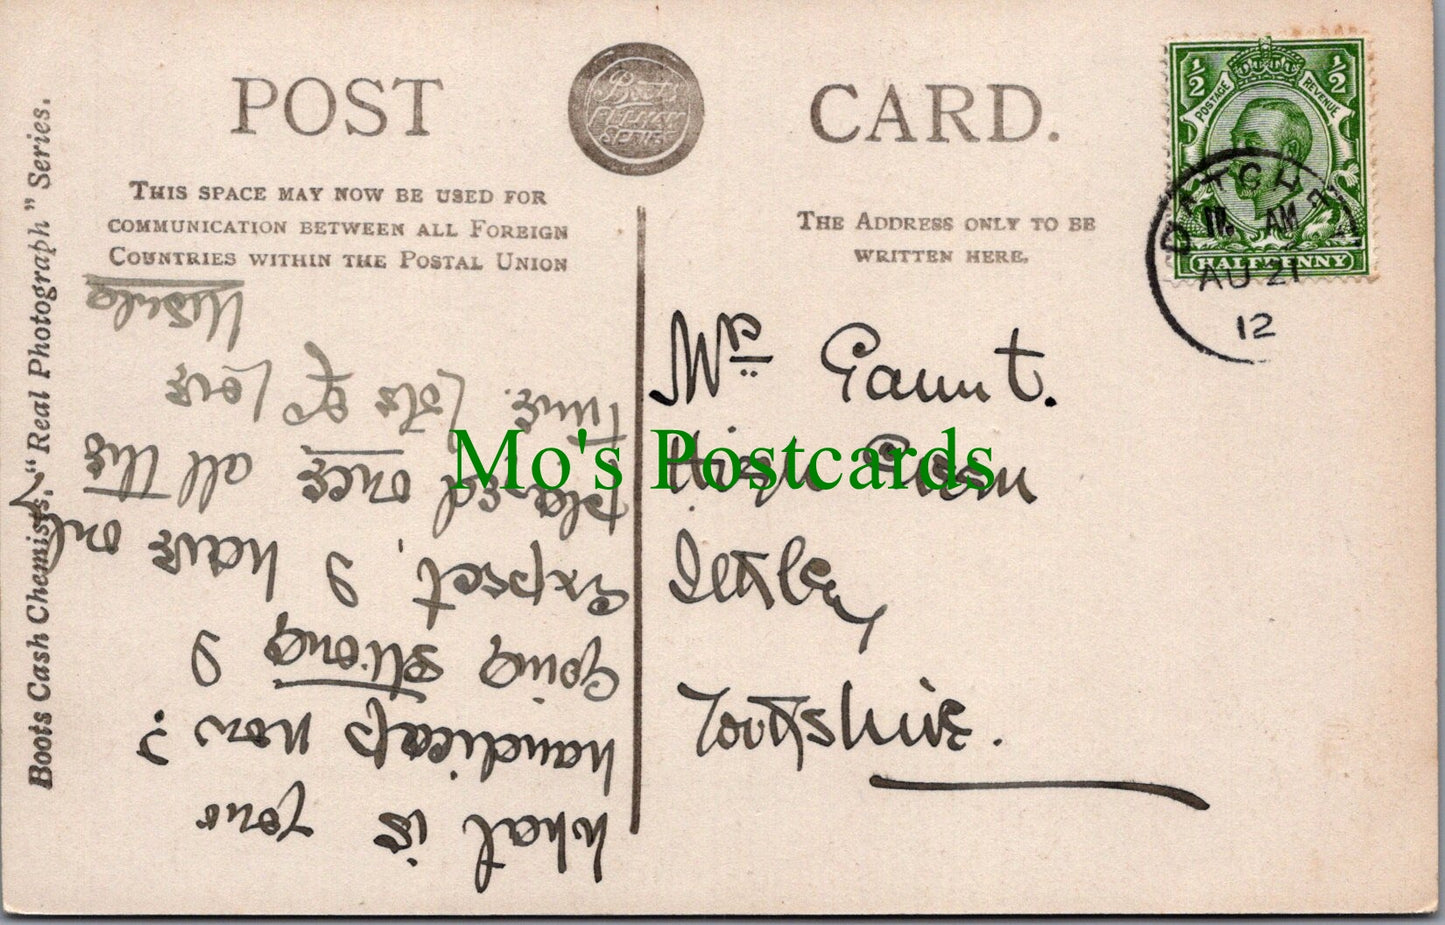 POST CARD.
Boots
PELHAM
SERIES
THIS SPACE MAY NOW BE USED FOR
COMMUNICATION BETWEEN ALL FOREIGN
COUNTRIES WITHIN THE POSTAL UNION
THE ADDRESS ONLY TO BE
WRITTEN HERE.
Boots Cash Chemists, "Real Photograph" Series.
½ ½
POSTAGE REVENUE
HALFPENNY
DATCHE
AM
AU 21
12
What is your
handicap now?
Going strong I
Expect, I have only
played once all this
time. Lots of love
Ursula
Mrs Gaunt.
High
Yorkshire.
Mo's Postcards